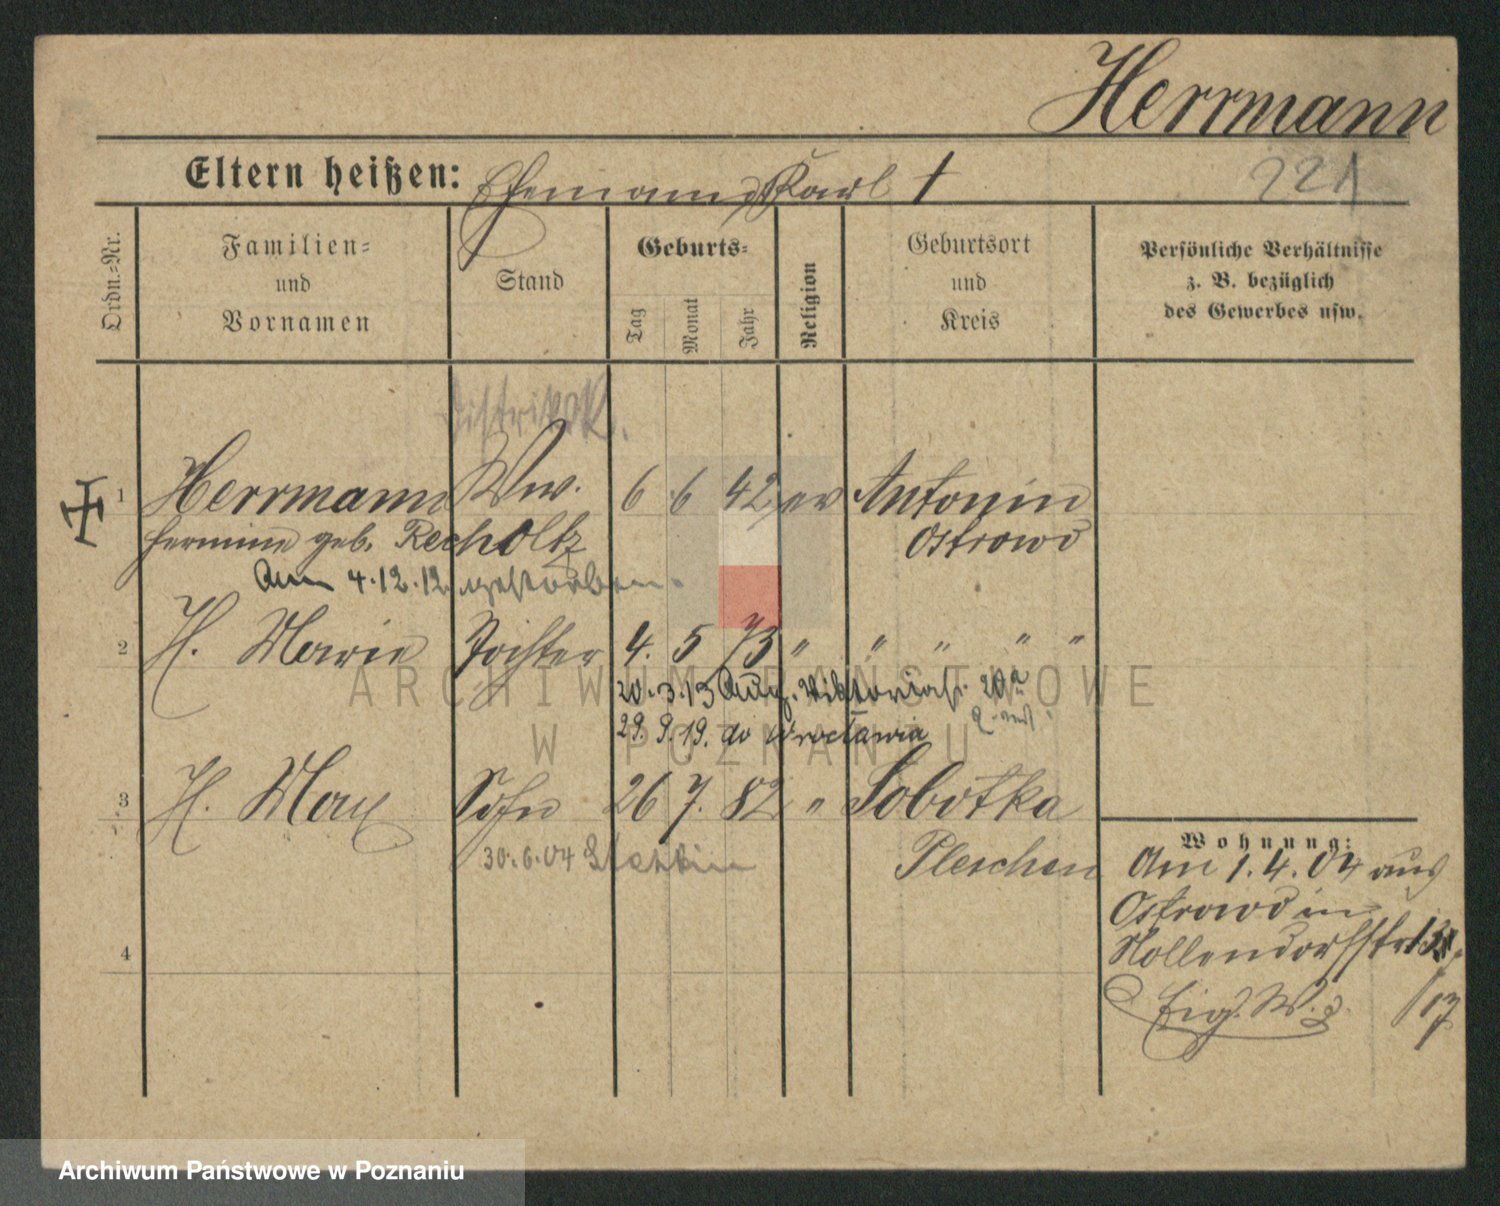 Herrmann
221
Eltern heißen: Ehemann Karl †
Ordn.=Nr.
Familien=
und
Vornamen
Stand
Geburts=
Tag
Monat
Jahr
Religion
Geburtsort
und
Kreis
Persönliche Verhältnisse
z. B. bezüglich
des Gewerbes usw.
1 Herrmann Ww. 6 6 42 ev Antonin
Hermine geb. Rechholtz Ostrowo
Am 4.12.12 gestorben.
2 H. Marie Tochter 4. 5 73 " " " " "
20.3.13 Aug. Viktoriastr. 20a
29.9.19. do Wrocławia
3 H. Max Sohn 26 7. 82 " Sobotka
30.6.04 Stettin Pleschen
4
Wohnung:
Am 1.4.04 aus
Ostrowo in
Nollendorfstr.
Eig. W. z.
17
ARCHIWUM PAŃSTWOWE
W POZNANIU
Archiwum Państwowe w Poznaniu